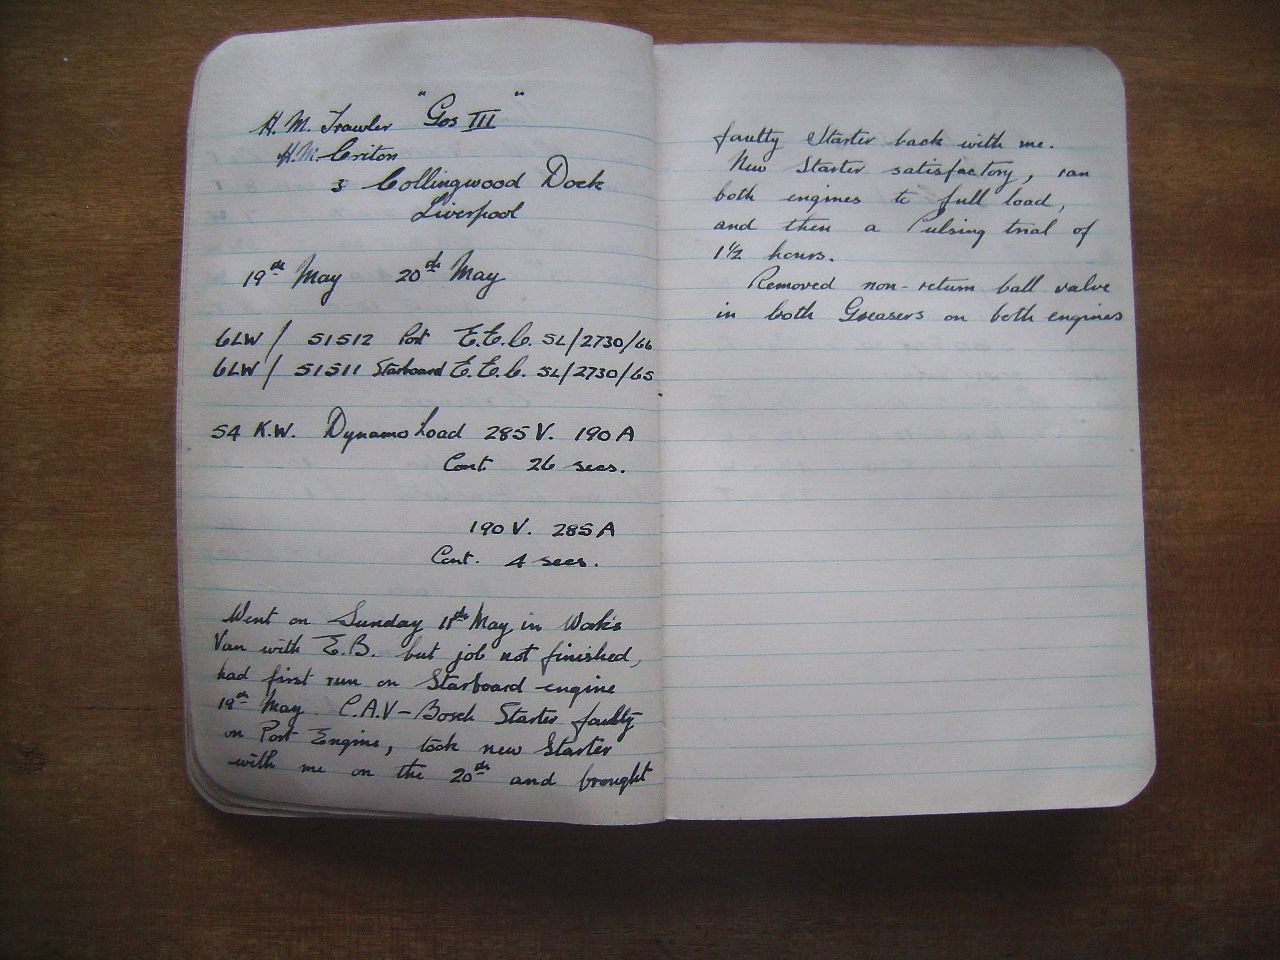 H.M. Trawler "Gos III"
H.M. Criton
3 Collingwood Dock
Liverpool
19th May 20th May
6LW / 51512 Port E.E.C. SL/2730/66
6LW / 51511 Starboard E.E.C. SL/2730/65
54 K.W. Dynamo Load 285 V. 190 A
Cont 26 secs.
190 V. 285 A
Cont. 4 secs.
Went on Sunday 18th May in Works
Van with E.B. but job not finished,
had first run on Starboard engine
18th May. C.A.V-Bosch Starter faulty
on Port Engine, took new Starter
with me on the 20th and brought
faulty Starter back with me.
New Starter satisfactory, ran
both engines to full load,
and then a Pulsing trial of
1½ hours.
Removed non-return ball valve
in both Greasers on both engines